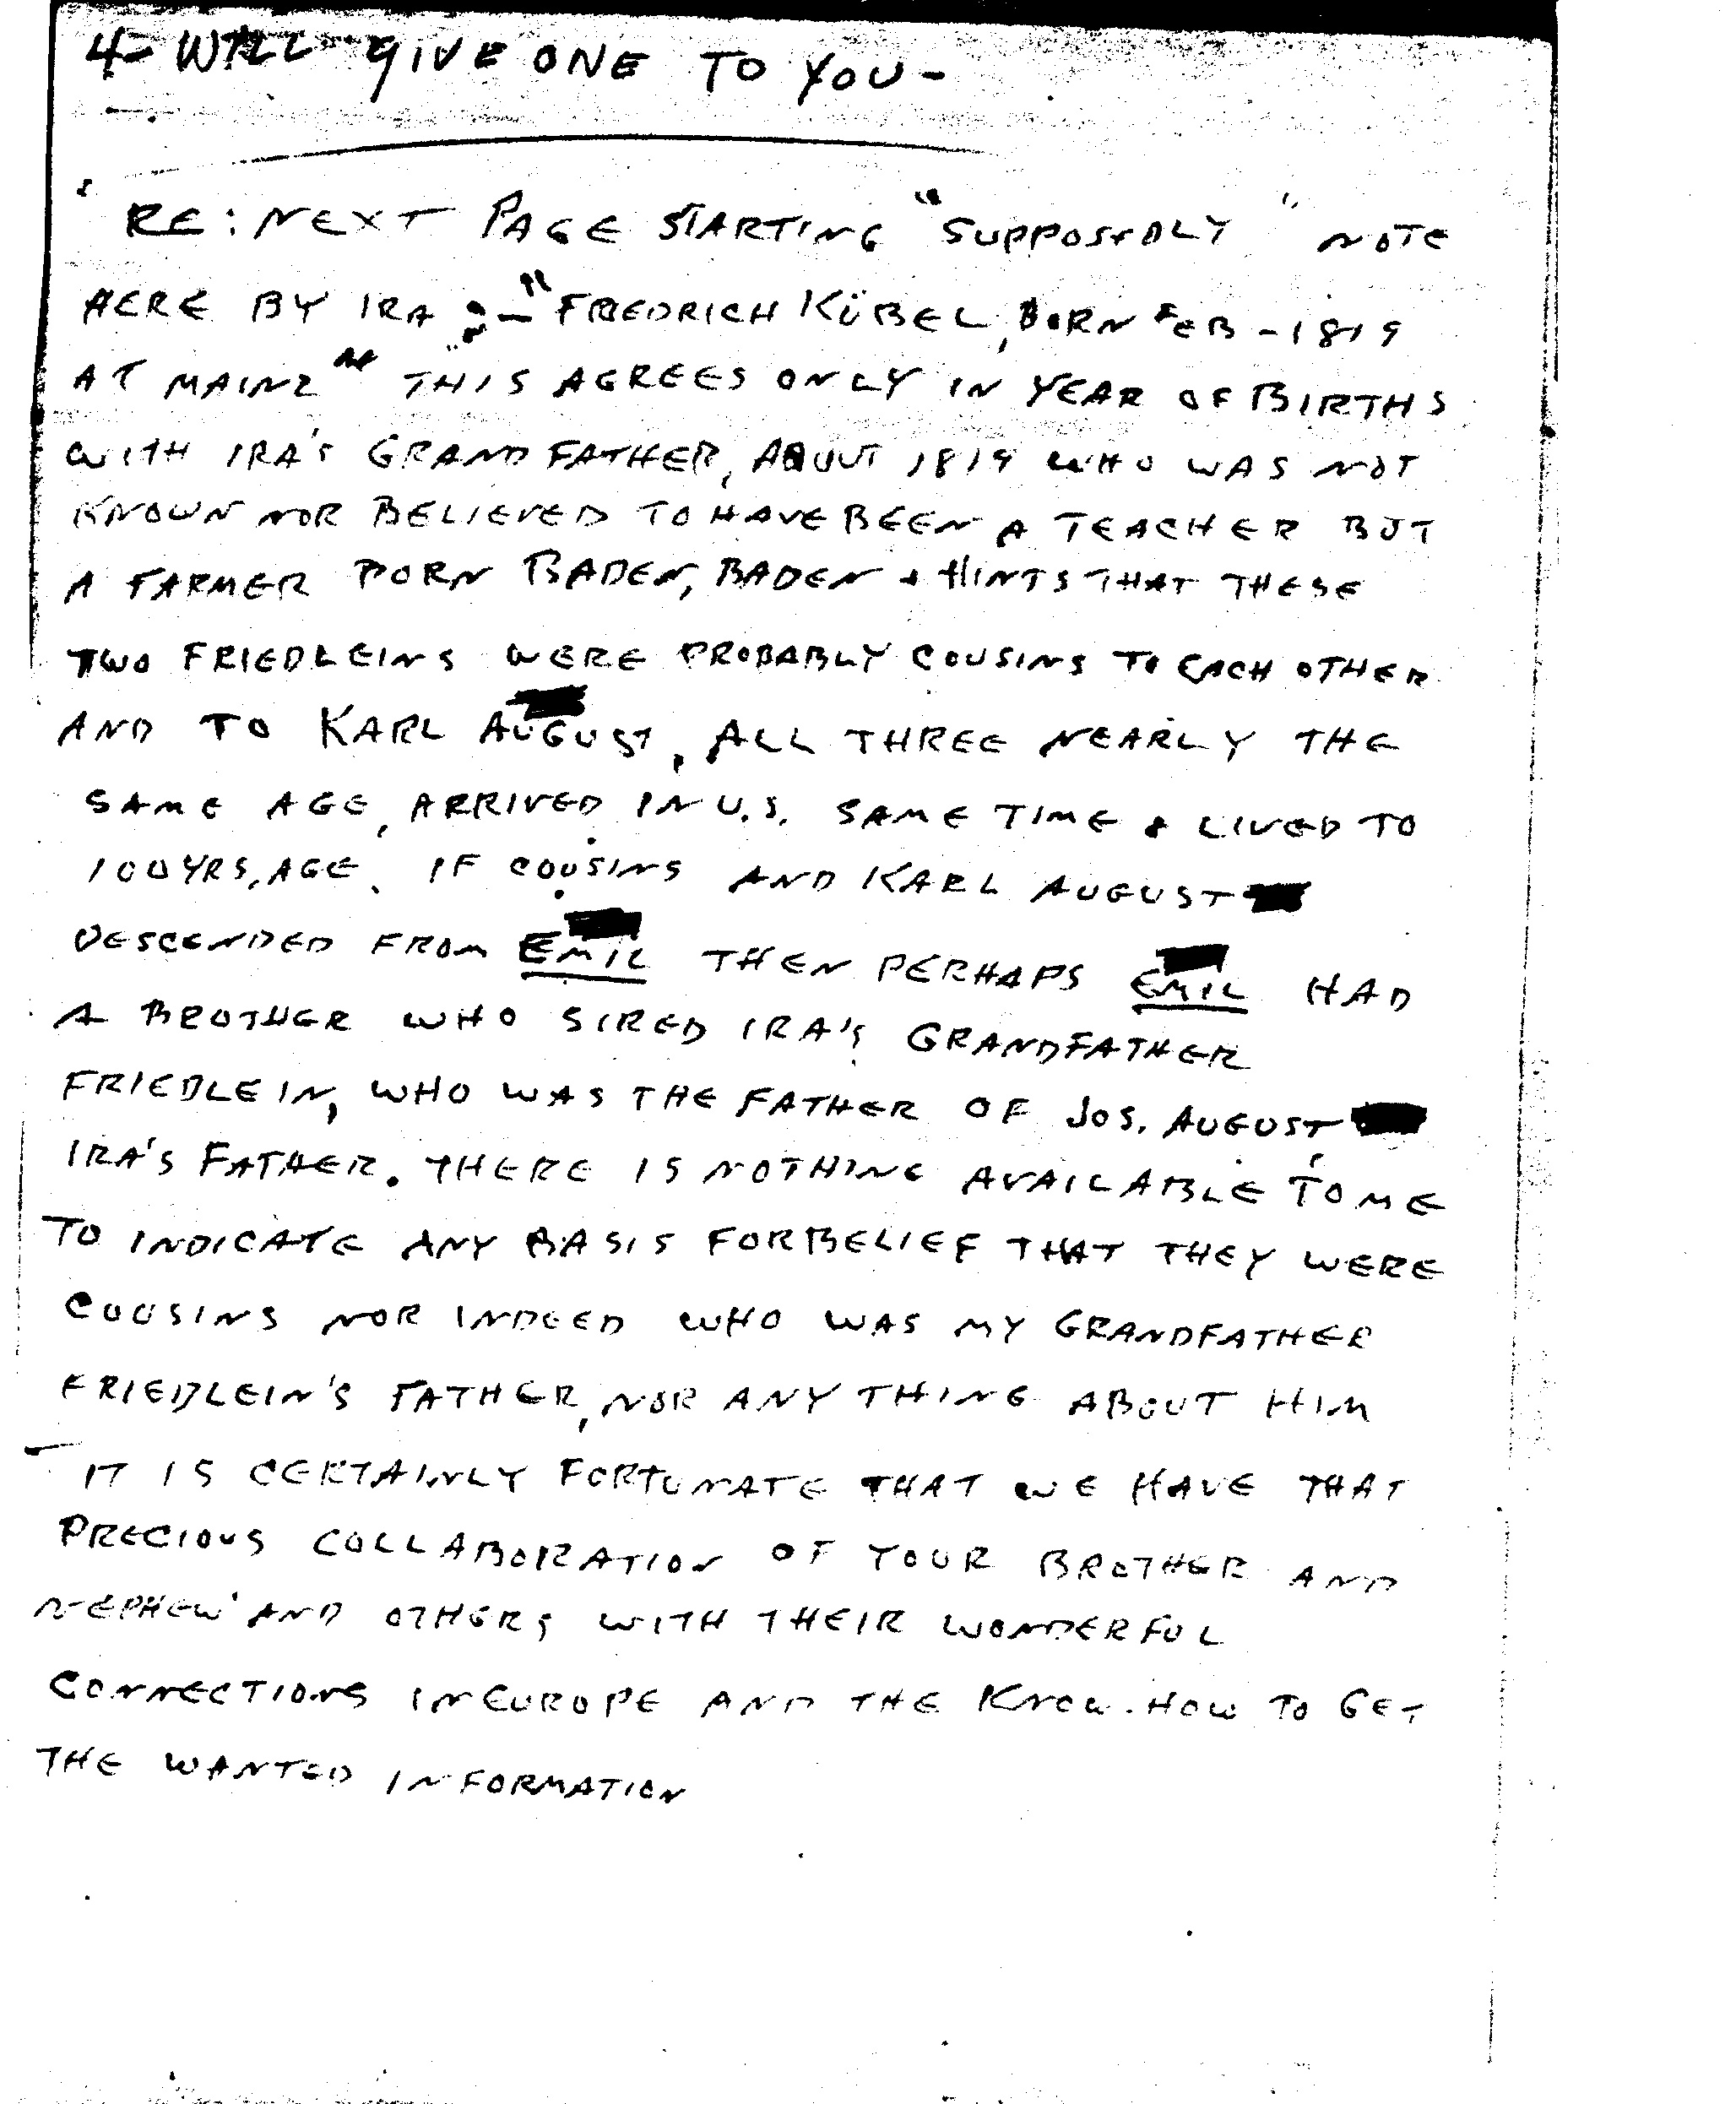 4- WILL GIVE ONE TO YOU -
RE: NEXT PAGE STARTING "SUPPOSEDLY" NOTE
HERE BY IRA :- "FRIEDRICH KÜBEL, BORN FEB - 1819
AT MAINZ" THIS AGREES ONLY IN YEAR OF BIRTHS
WITH IRA'S GRANDFATHER, ABOUT 1819 WHO WAS NOT
KNOWN NOR BELIEVED TO HAVE BEEN A TEACHER BUT
A FARMER BORN BADEN, BADEN + HINTS THAT THESE
TWO FRIEDLEINS WERE PROBABLY COUSINS TO EACH OTHER
AND TO KARL AUGUST, ALL THREE NEARLY THE
SAME AGE, ARRIVED IN U.S. SAME TIME & LIVED TO
100 YRS, AGE. IF COUSINS AND KARL AUGUST
DESCENDED FROM EMIL THEN PERHAPS EMIL HAD
A BROTHER WHO SIRED IRA'S GRANDFATHER
FRIEDLEIN, WHO WAS THE FATHER OF JOS. AUGUST
IRA'S FATHER. THERE IS NOTHING AVAILABLE TO ME
TO INDICATE ANY BASIS FOR BELIEF THAT THEY WERE
COUSINS NOR INDEED WHO WAS MY GRANDFATHER
FRIEDLEIN'S FATHER, NOR ANY THING ABOUT HIM
IT IS CERTAINLY FORTUNATE THAT WE HAVE THAT
PRECIOUS COLLABORATION OF YOUR BROTHER AND
NEPHEW AND OTHERS WITH THEIR WONDERFUL
CONNECTIONS IN EUROPE AND THE KNOW-HOW TO GET
THE WANTED INFORMATION